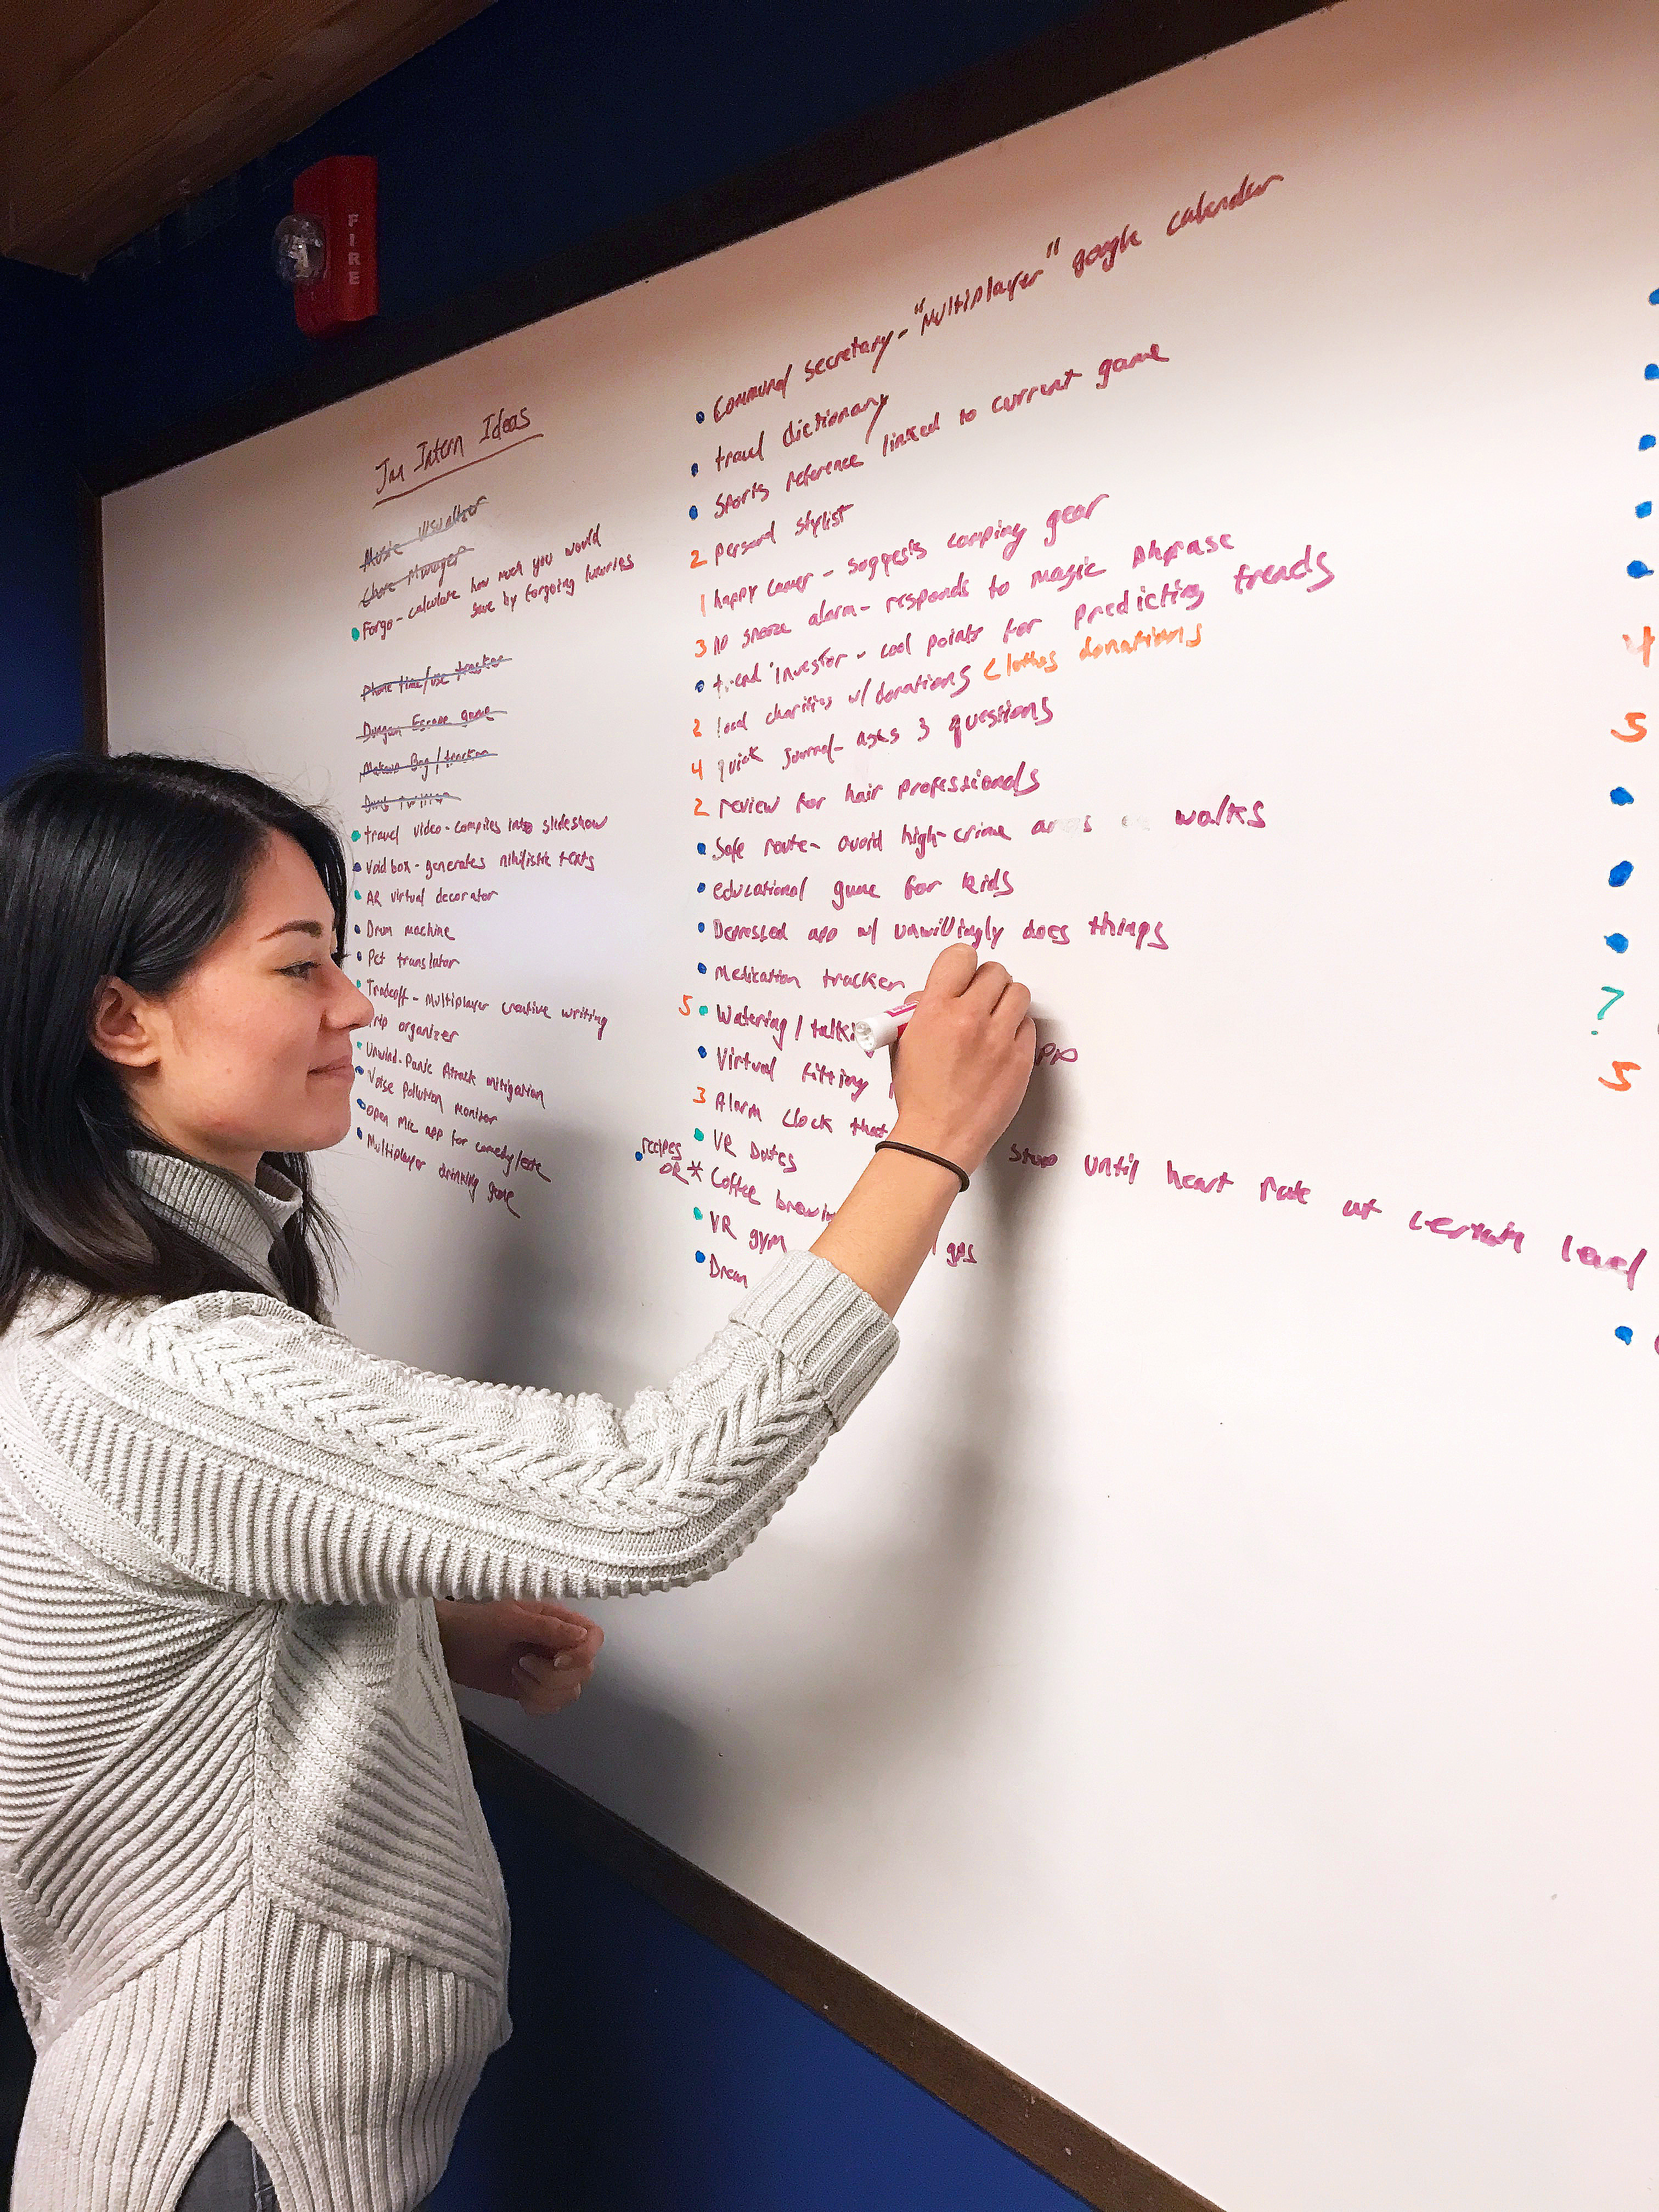 FIRE
Jan Intern Ideas
Music Visualizer
Chore Manager
Forgo - calculate how much you would
save by forgoing luxuries
Phone time/use tracker
Dungeon Escape game
Makeup Bag/tracker
travel video - compiles into slideshow
Void box - generates nihilistic texts
AR virtual decorator
Drum machine
Pet translator
Tradeoff - Multiplayer creative writing
trip organizer
Unwind - Panic Attack mitigation
Noise Pollution monitor
open mic app for comedy/etc
Multiplayer drinking game
Communal secretary - "Multiplayer" google calender
travel dictionary
Sports reference linked to current game
2 personal stylist
1 happy camper - suggests camping gear
3 No snooze alarm - responds to magic phrase
trend investor - cool points for predicting trends
2 local charities w/ donations clothes donations
4 quick journal - asks 3 questions
2 review for hair professionals
Safe route - avoid high-crime areas walks
educational game for kids
Depressed app w/ unwillingly does things
Medication tracker
5 Watering /
Virtual fitting
3 Alarm clock that stop until heart rate at certain level
VR Dates
recipes
OR * Coffee
VR gym
4
5
?
5